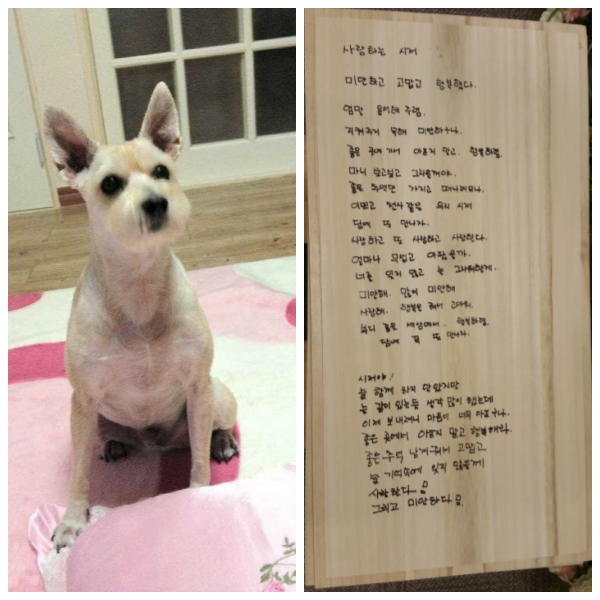 사랑하는 시저
미안하고 고맙고 행복했다.
엄마 용서해 주렴.
지켜주지 못해 미안하구나.
좋은 곳에 가서 아프지 말고. 행복하렴.
마니 보고싶고 그리울꺼야.
좋은 추억만 가지고 떠나려므나.
이쁘고 천사같은 우리 시저
담에 또 만나자.
사랑하고 또 사랑하고 사랑한다.
얼마나 무섭고 아팠을까.
너를 잊지 않고 늘 그리워할게.
미안해. 많이 미안해
사랑해. 행복을 줘서 고마워.
부디 좋은 세상에서. 행복하렴.
담에 꼭 또 만나자.
시저야!
늘 함께 하지 만 않았지만
늘 같이 있는듯 생각 많이 했는데
이제 보내려니 마음이 너무 아프구나.
좋은 곳에서 아프지 말고 행복해라
좋은 추억 남겨줘서 고맙고
늘 기억속에 잊지 않을께
사랑한다
그리고 미안하다